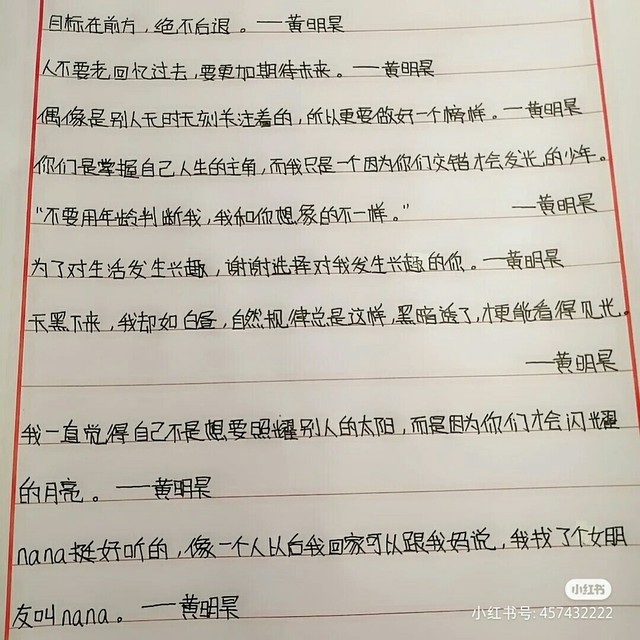 目标在前方，绝不后退。——黄明昊
人不要老回忆过去，要更加期待未来。——黄明昊
偶像是别人无时无刻关注着的，所以更要做好一个榜样。——黄明昊
你们是掌握自己人生的主角，而我只是一个因为你们交错才会发光的少年。
“不要用年龄判断我，我和你想象的不一样。” ——黄明昊
为了对生活发生兴趣，谢谢选择对我发生兴趣的你。——黄明昊
天黑下来，我却如白昼，自然规律总是这样，黑暗透了，才更能看得见光。
——黄明昊
我一直觉得自己不是想要照耀别人的太阳，而是因为你们才会闪耀
的月亮。——黄明昊
nana挺好听的，像一个人以后我回家可以跟我妈说，我找了个女朋
友叫nana。——黄明昊
小红书
小红书号: 457432222